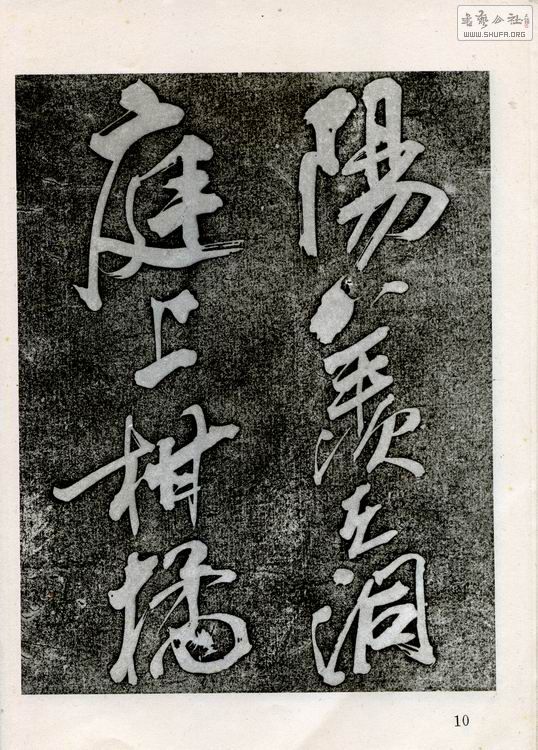 陽羨在洞
庭上柑橘
書藝公社
WWW.SHUFA.ORG
10